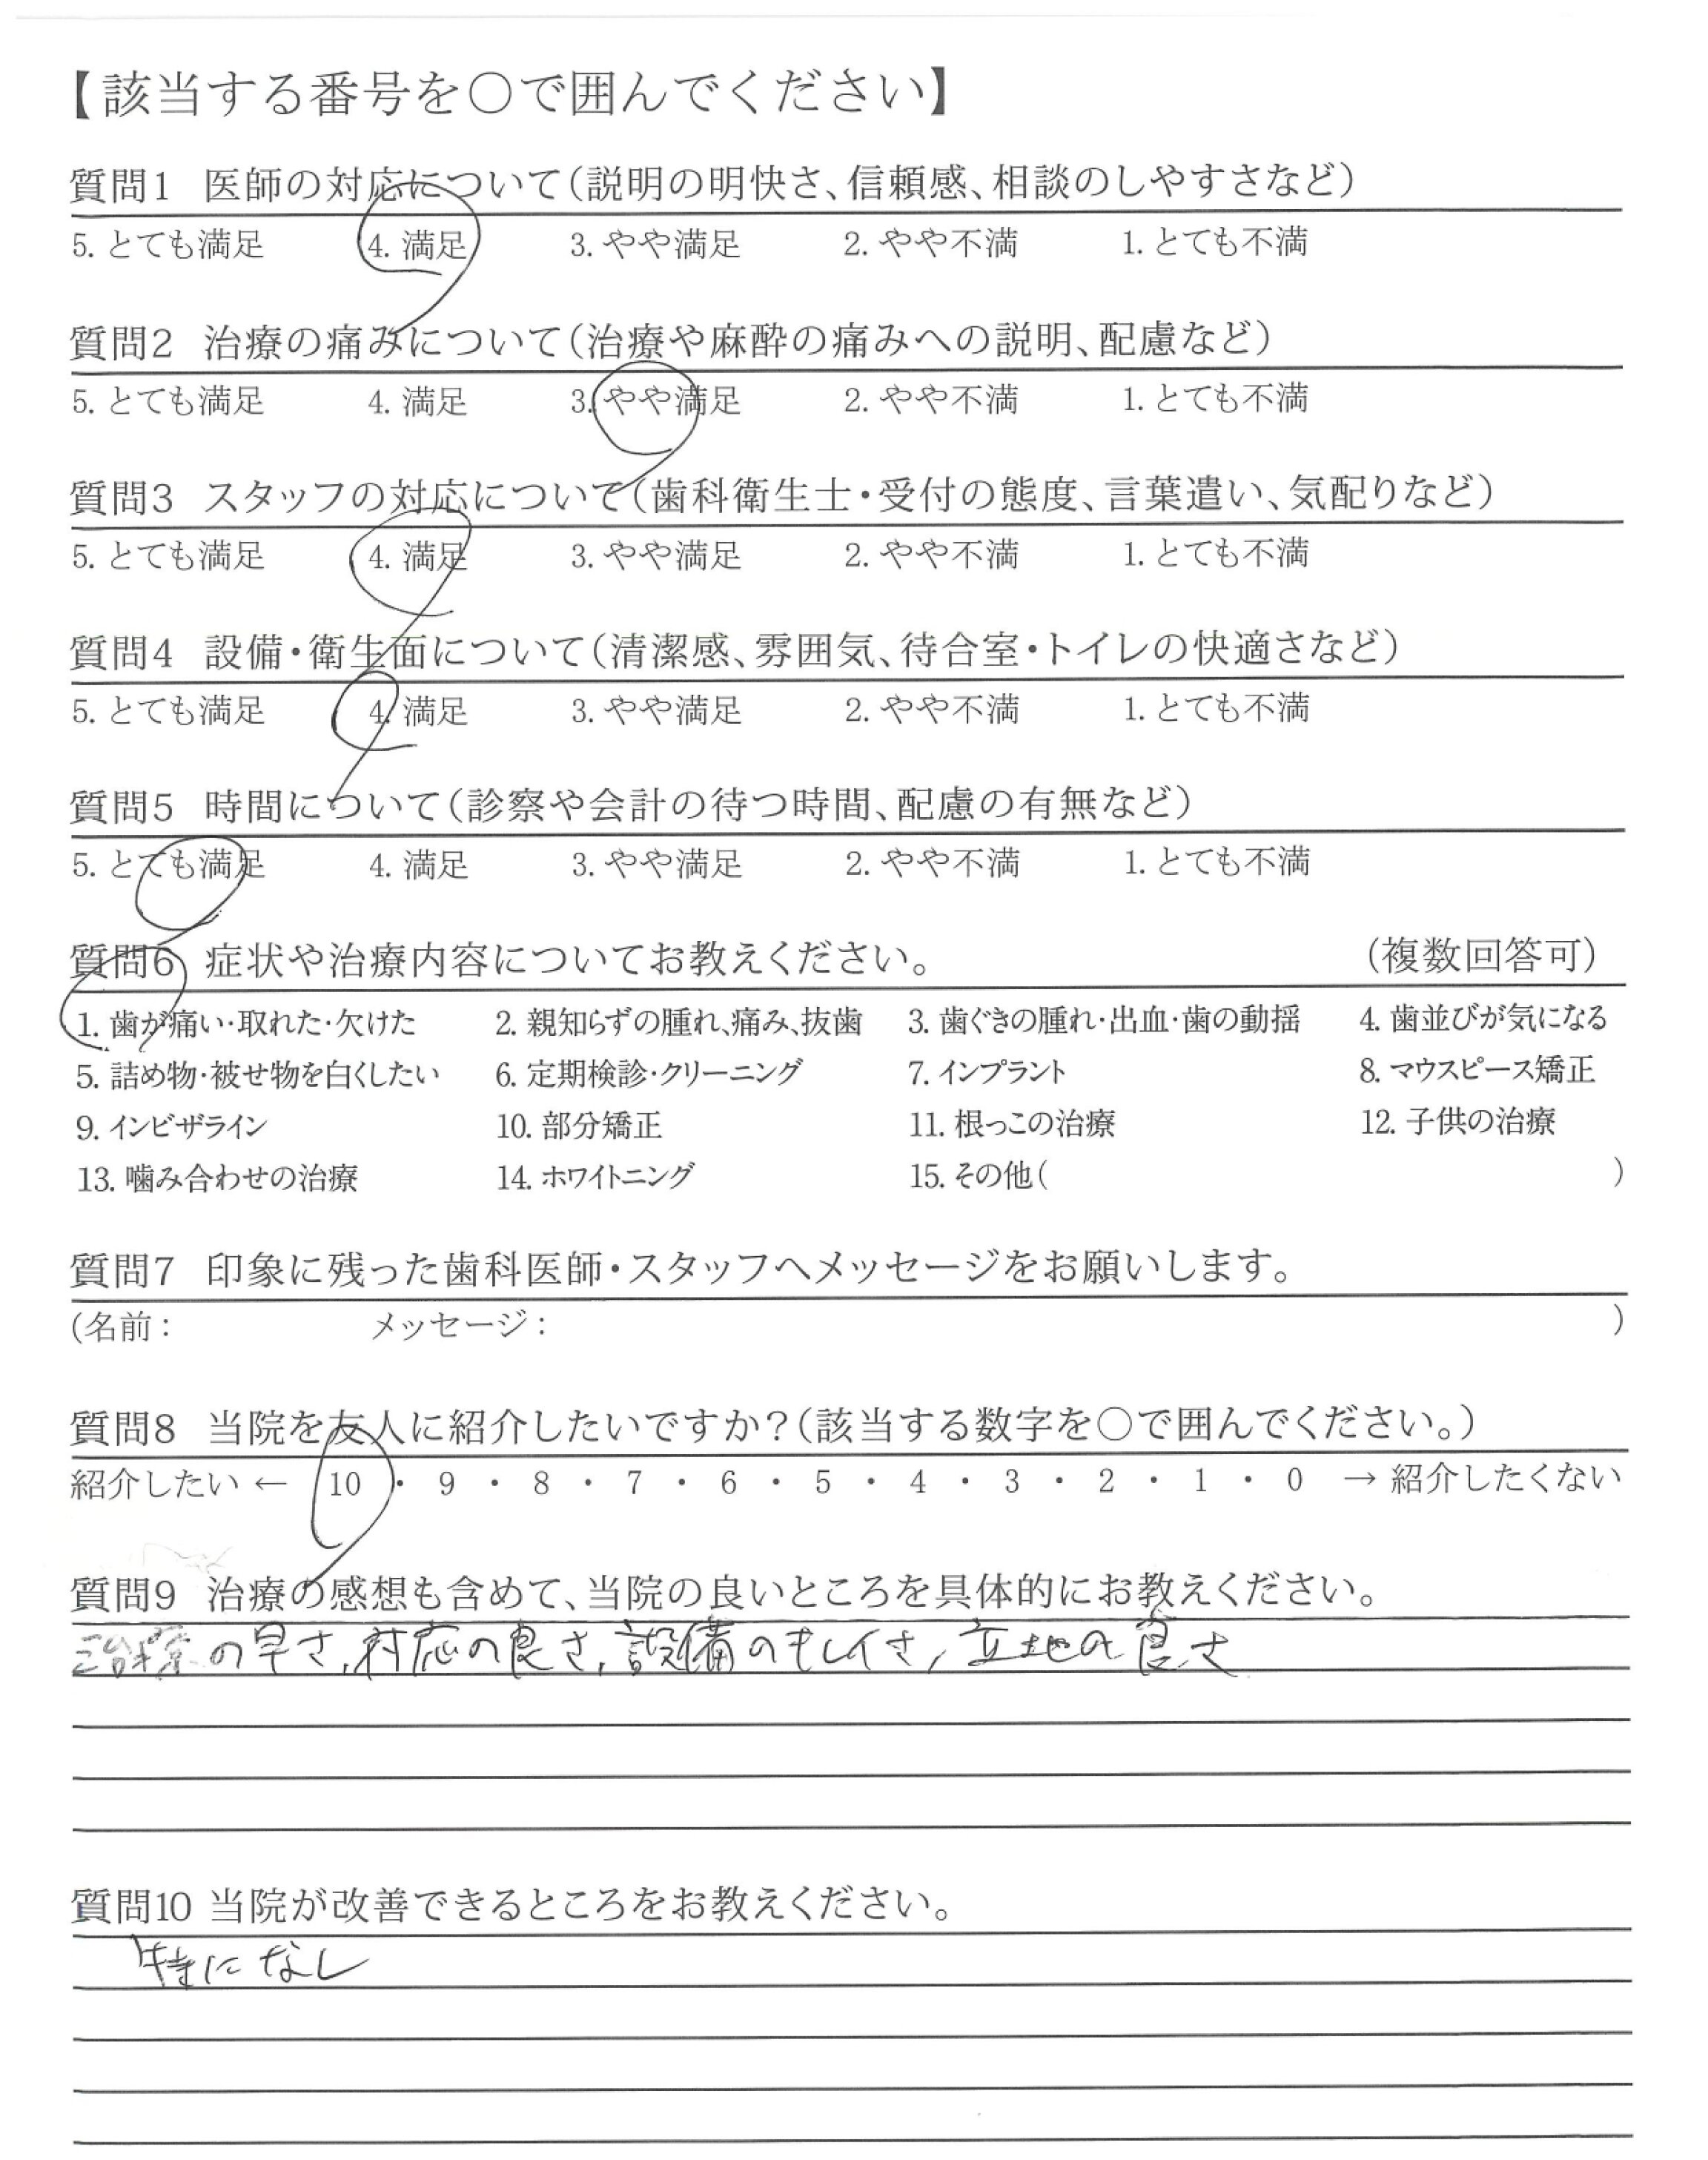 【該当する番号を○で囲んでください】
質問1 医師の対応について(説明の明快さ、信頼感、相談のしやすさなど)
5. とても満足 4. 満足 3. やや満足 2. やや不満 1. とても不満
質問2 治療の痛みについて(治療や麻酔の痛みへの説明、配慮など)
5. とても満足 4. 満足 3. やや満足 2. やや不満 1. とても不満
質問3 スタッフの対応について(歯科衛生士・受付の態度、言葉遣い、気配りなど)
5. とても満足 4. 満足 3. やや満足 2. やや不満 1. とても不満
質問4 設備・衛生面について(清潔感、雰囲気、待合室・トイレの快適さなど)
5. とても満足 4. 満足 3. やや満足 2. やや不満 1. とても不満
質問5 時間について(診察や会計の待つ時間、配慮の有無など)
5. とても満足 4. 満足 3. やや満足 2. やや不満 1. とても不満
質問6 症状や治療内容についてお教えください。 (複数回答可)
1. 歯が痛い・取れた・欠けた 2. 親知らずの腫れ、痛み、抜歯 3. 歯ぐきの腫れ・出血・歯の動揺 4. 歯並びが気になる
5. 詰め物・被せ物を白くしたい 6. 定期検診・クリーニング 7. インプラント 8. マウスピース矯正
9. インビザライン 10. 部分矯正 11. 根っこの治療 12. 子供の治療
13. 噛み合わせの治療 14. ホワイトニング 15. その他( )
質問7 印象に残った歯科医師・スタッフへメッセージをお願いします。
(名前: メッセージ: )
質問8 当院を友人に紹介したいですか?(該当する数字を○で囲んでください。)
紹介したい ← 10 ・ 9 ・ 8 ・ 7 ・ 6 ・ 5 ・ 4 ・ 3 ・ 2 ・ 1 ・ 0 → 紹介したくない
質問9 治療の感想も含めて、当院の良いところを具体的にお教えください。
治療の早さ、対応の良さ、設備のキレイさ、立地の良さ
質問10 当院が改善できるところをお教えください。
特になし